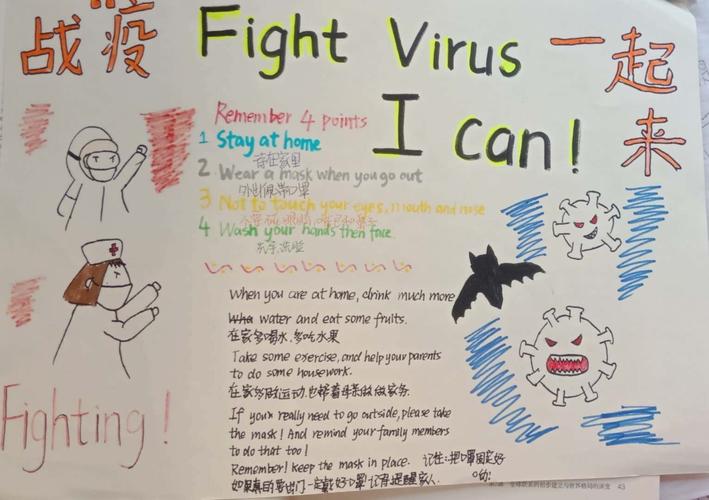 战疫 Fight Virus 一起来
I can!
Remember 4 points
1 Stay at home
待在家里
2 Wear a mask when you go out
外出佩带口罩
3 Not to touch your eyes, mouth and nose
4 Wash your hands then face
洗手、洗脸
When you are at home, drink much more
water and eat some fruits.
在家多喝水,多吃水果
Take some exercise, and help your parents
to do some housework.
在家多做运动,也帮着母亲做做家务.
If you really need to go outside, please take
the mask! And remind your family members
to do that too!
Remember! keep the mask in place. 记住:把口罩固定好
如果真的要出门一定戴好口罩!记得提醒家人.
Fighting!
43